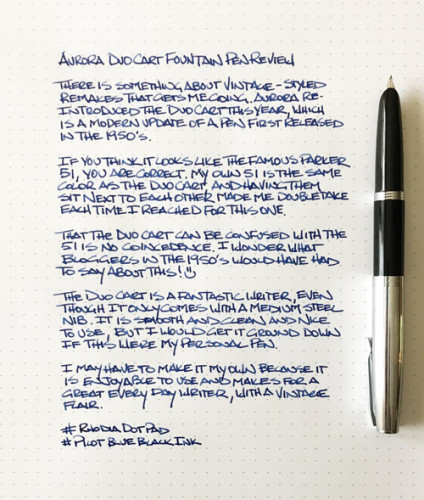 AURORA DUO CART FOUNTAIN PEN REVIEW
THERE IS SOMETHING ABOUT VINTAGE-STYLED
REMAKES THAT GETS ME GOING. AURORA RE-
INTRODUCED THE DUO CART THIS YEAR, WHICH
IS A MODERN UPDATE OF A PEN FIRST RELEASED
IN THE 1950'S.
IF YOU THINK IT LOOKS LIKE THE FAMOUS PARKER
51, YOU ARE CORRECT. MY OWN 51 IS THE SAME
COLOR AS THE DUO CART, AND HAVING THEM
SIT NEXT TO EACH OTHER MADE ME DOUBLETAKE
EACH TIME I REACHED FOR THIS ONE.
THAT THE DUO CART CAN BE CONFUSED WITH THE
51 IS NO COINCEDENCE. I WONDER WHAT
BLOGGERS IN THE 1950'S WOULD HAVE HAD
TO SAY ABOUT THIS! ☺
THE DUO CART IS A FANTASTIC WRITER, EVEN
THOUGH IT ONLY COMES WITH A MEDIUM STEEL
NIB. IT IS SMOOTH AND CLEAN AND NICE
TO USE, BUT I WOULD GET IT GROUND DOWN
IF THIS WERE MY PERSONAL PEN.
I MAY HAVE TO MAKE IT MY OWN BECAUSE IT
IS ENJOYABLE TO USE AND MAKES FOR A
GREAT EVERY DAY WRITER, WITH A VINTAGE
FLAIR.
# RHODIA DOT PAD
# PILOT BLUE BLACK INK